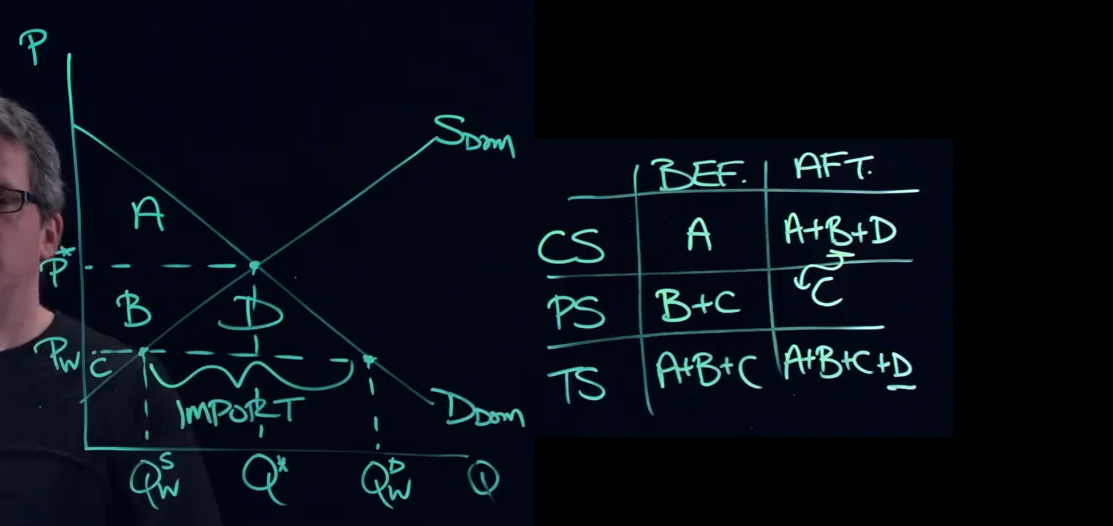 P
S_Dom
A
P*
B D
P_W C
IMPORT
D_Dom
Q_W^S Q* Q_W^D Q
BEF. AFT.
CS A A+B+D
PS B+C C
TS A+B+C A+B+C+D